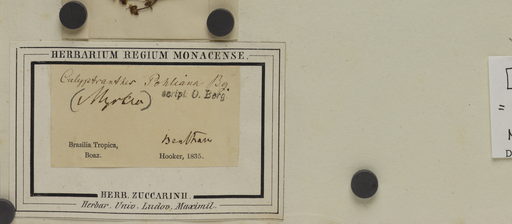 HERBARIUM REGIUM MONACENSE.
Calyptranthes Pohliana Bg
(Myrcia) script. O. Berg.
Brasilia Tropica, Bentham
Boaz. Hooker, 1835.
HERB. ZUCCARINII
Herbar. Univ. Ludov. Maximil.
=